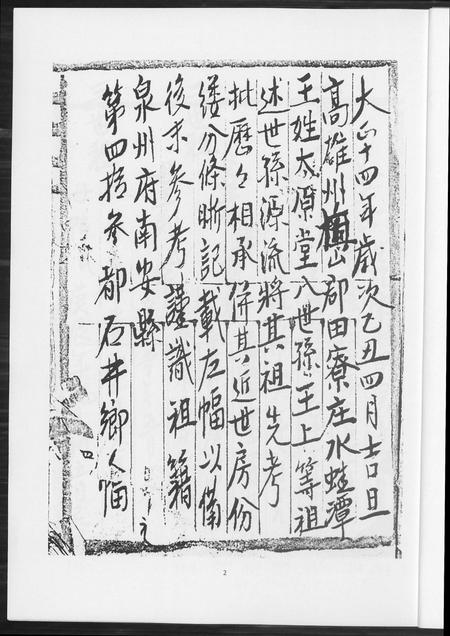 大正十四年歲次乙丑四月吉日旦
高雄州旗山郡田寮庄水蛙潭
王姓太原堂八世孫王上等祖
述世孫源流將其祖先考
批歷々相承併其近世房份
縷分條晰記載左幅以備
後末參考謹識祖籍
泉州府南安縣
第四拾參都石井鄉人
2